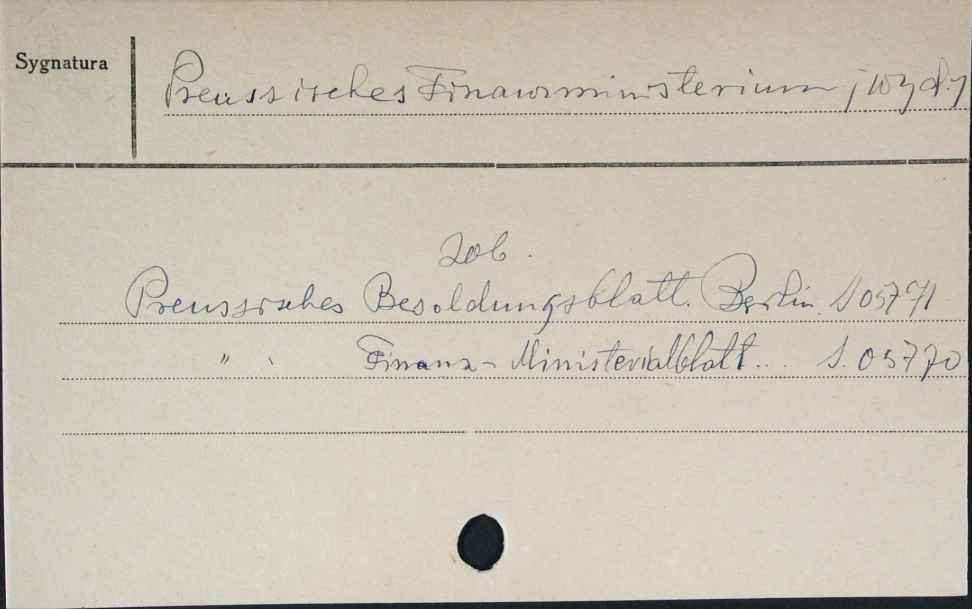 Sygnatura
Preussisches Finanzministerium [wyd.]
Zob.
Preussisches Besoldungsblatt. Berlin. S 05771
" Finanz-Ministerialblatt... S. 05770